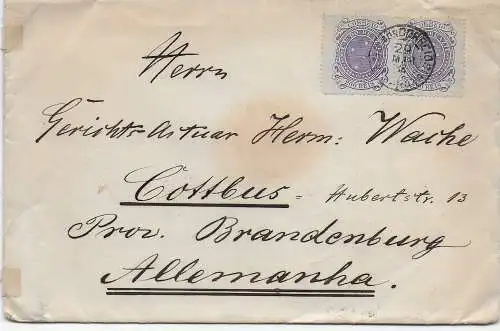 Herrn
Gerichts-Actuar Herm: Wache
Cottbus - Hubertstr. 13
Prov. Brandenburg
Allemanha.